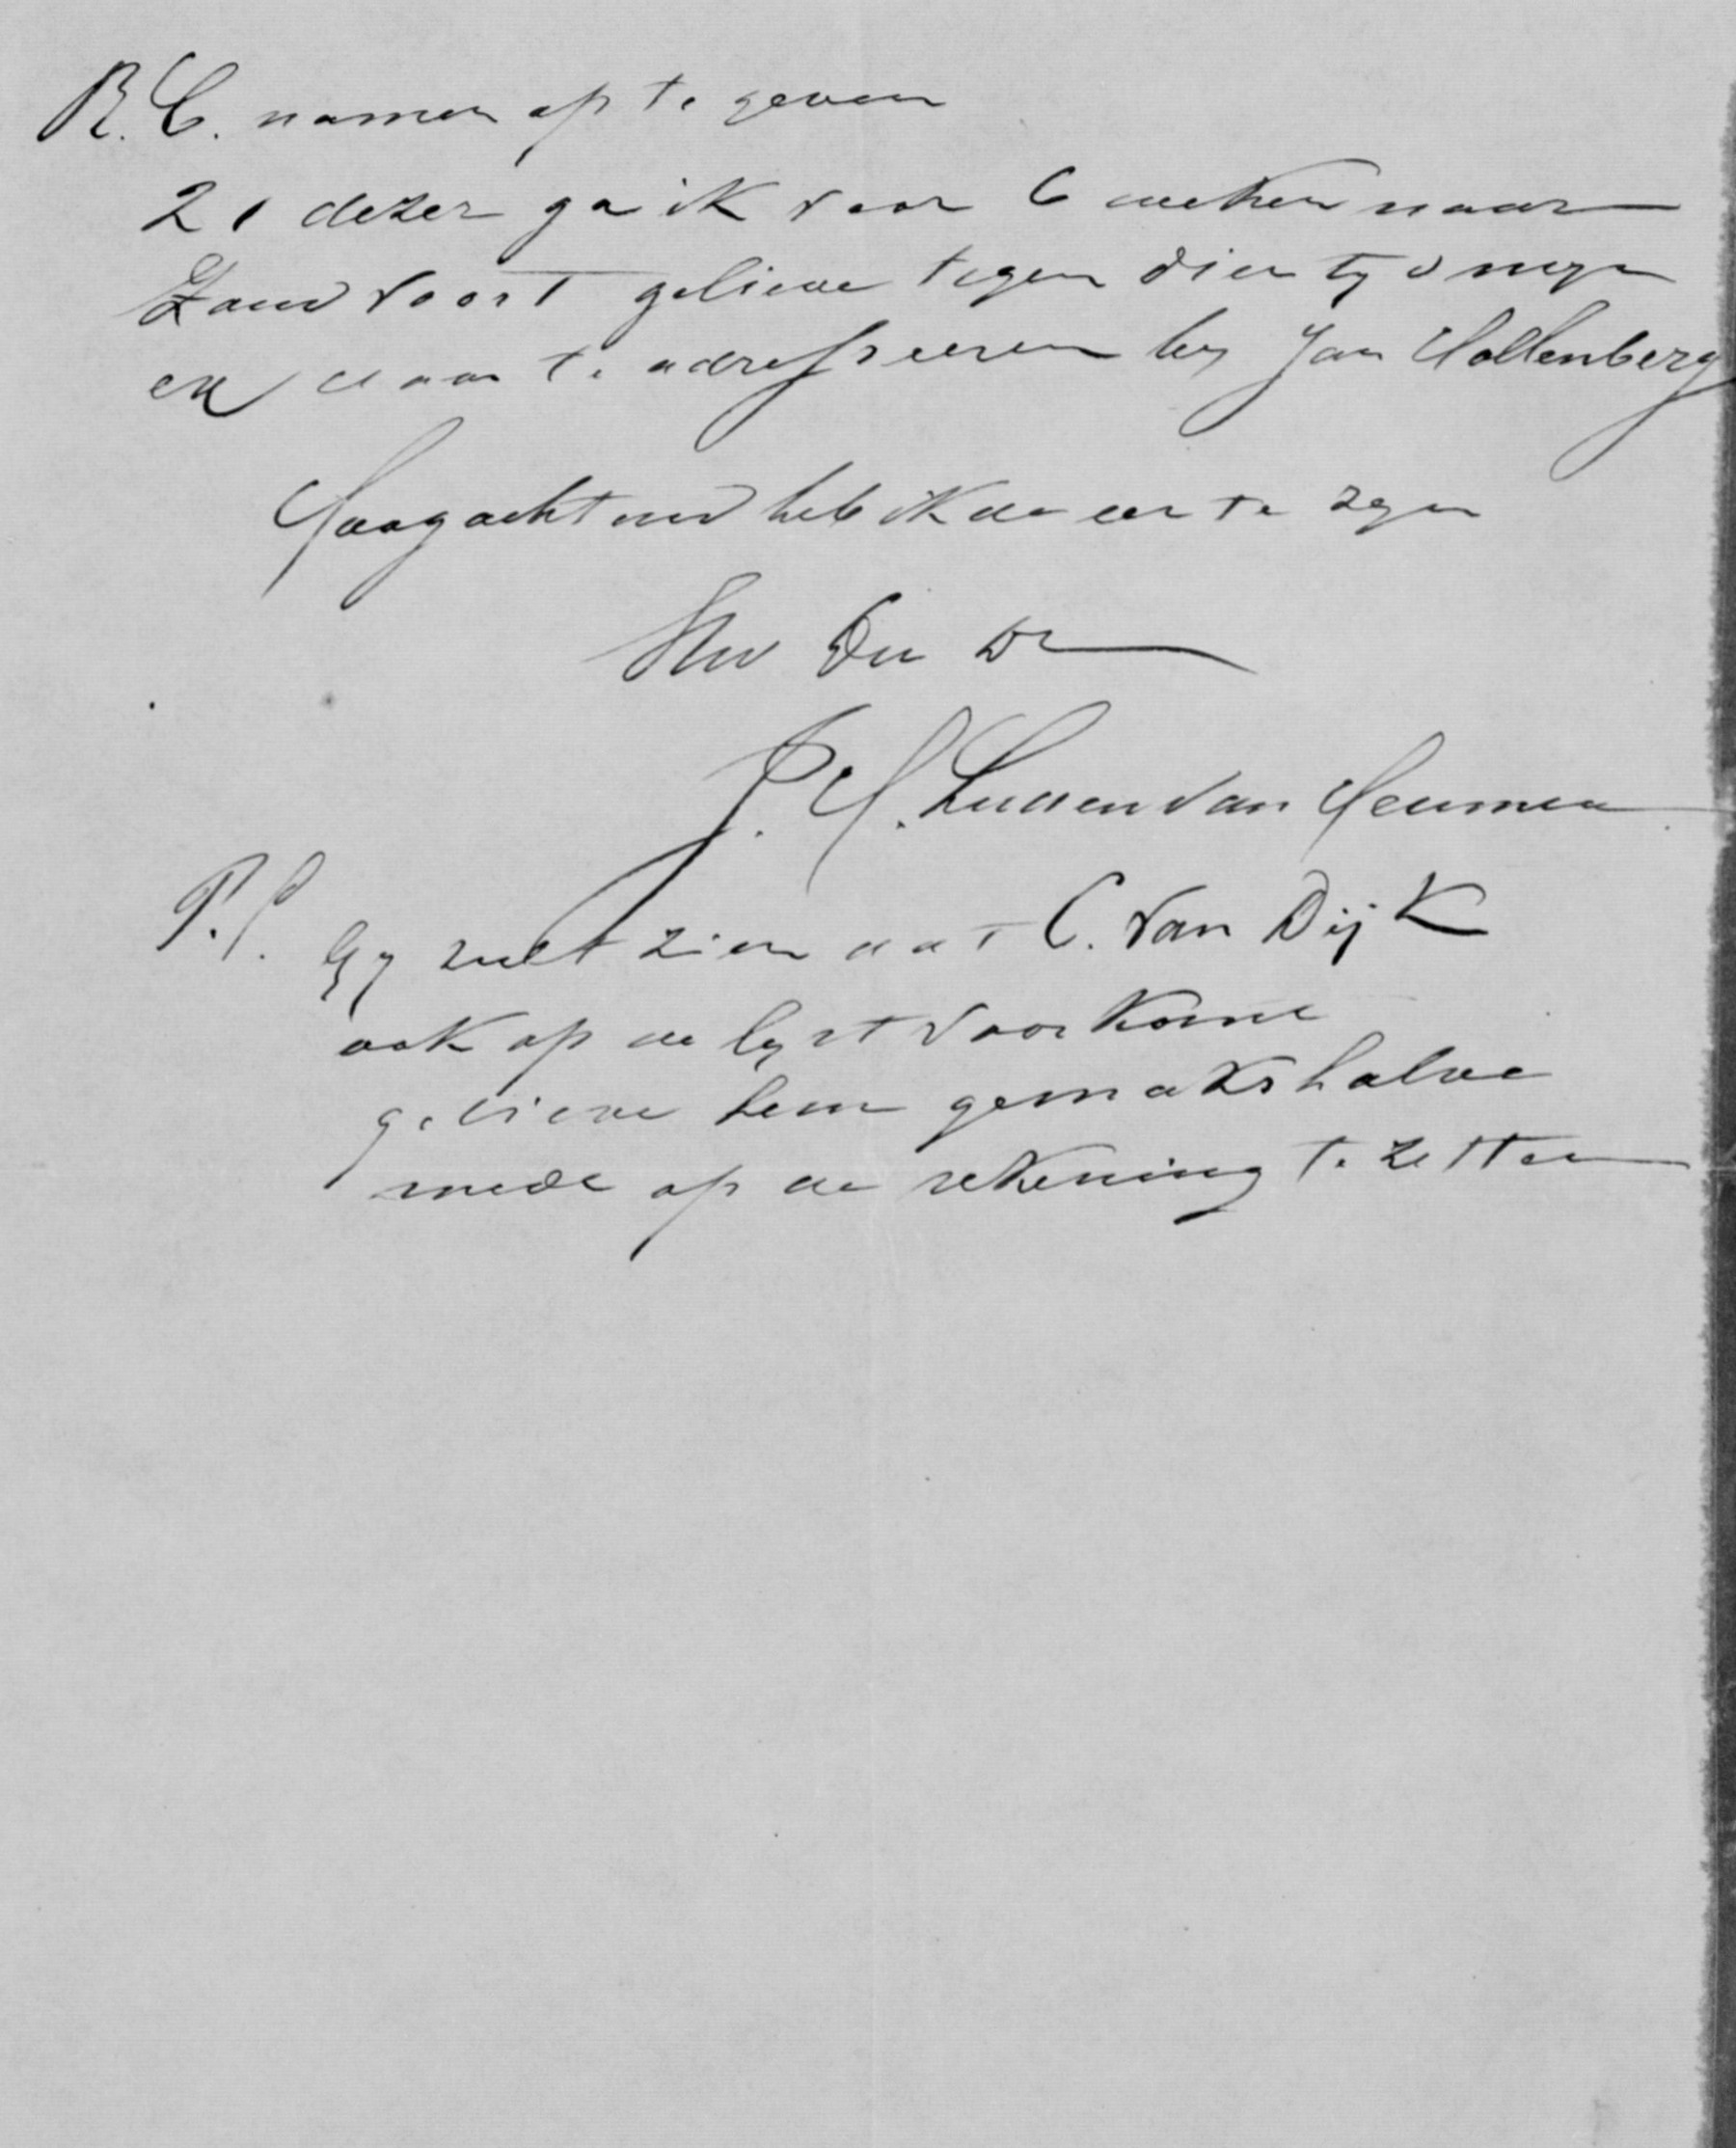 R. C. namen op te geven
21 dezer ga ik voor 6 weken naar
Zandvoort gelieve tegen dien tyd mijn
ex daar te adresseeren by Jan Hollenberg
Hoogachtend heb ik de eer te zyn
Uw Dw Dr
J. H. van Heumen
P.S. Gy zult zien dat C. van Dijk
ook op de lyst voorkomt
gelieve hem gemakshalve
mede op de rekening te zetten